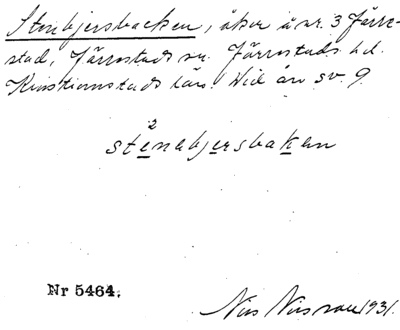 Stenbjersbacken, åker å nr. 3 Järre-
stad, Järrestads sn. Järrestads hd.
Kristianstads län. Vid ån sv. 9.
2
stenabjersbaken
Nr 5464.
Nils Nilsson 1931.